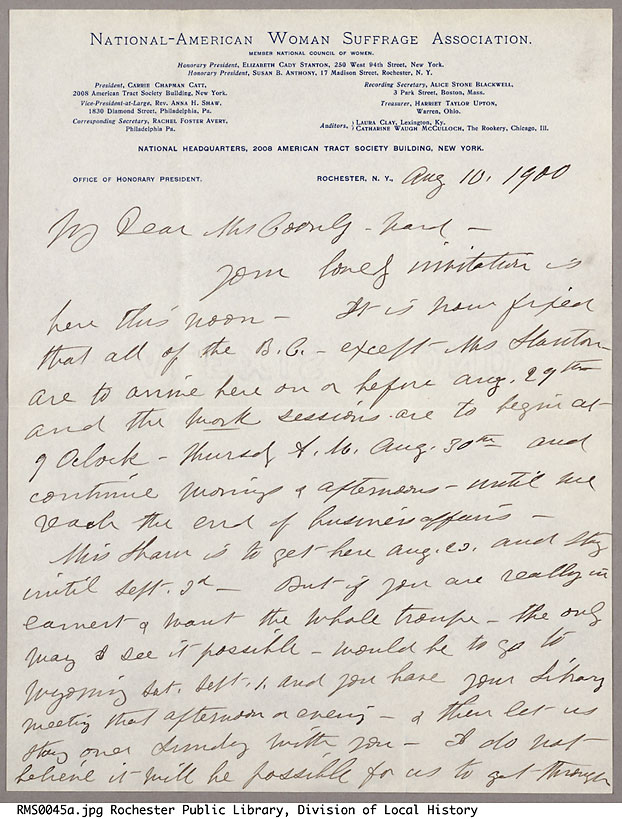 NATIONAL-AMERICAN WOMAN SUFFRAGE ASSOCIATION.
MEMBER NATIONAL COUNCIL OF WOMEN.
Honorary President, ELIZABETH CADY STANTON, 250 West 94th Street, New York.
Honorary President, SUSAN B. ANTHONY, 17 Madison Street, Rochester, N. Y.
President, CARRIE CHAPMAN CATT,
2008 American Tract Society Building, New York.
Vice-President-at-Large, REV. ANNA H. SHAW,
1830 Diamond Street, Philadelphia, Pa.
Corresponding Secretary, RACHEL FOSTER AVERY,
Philadelphia Pa.
Recording Secretary, ALICE STONE BLACKWELL,
3 Park Street, Boston, Mass.
Treasurer, HARRIET TAYLOR UPTON,
Warren, Ohio.
Auditors, LAURA CLAY, Lexington, Ky.
CATHARINE WAUGH MCCULLOCH, The Rookery, Chicago, Ill.
NATIONAL HEADQUARTERS, 2008 AMERICAN TRACT SOCIETY BUILDING, NEW YORK.
OFFICE OF HONORARY PRESIDENT.
ROCHESTER, N. Y., Aug 10. 1900
My Dear Mrs - Ward -
Your lovely invitation is
here this noon - It is now fixed
that all of the B. C. - except Mrs Stanton -
are to arrive here on or before Aug. 29th
and the work sessions are to begin at
9 Oclock - Thursdy A. M. Aug. 30th and
continue mornings & afternoons - until we
reach the end of business affairs -
Miss Shaw is to get here Aug. 23. and stay
until Sept. 3d - But if you are really in
earnest & want the whole troupe - the only
way I see it possible - would be to go to
Wyoming Sat. Sept. 1. and you have your Library
meeting that afternoon or evening - & then let us
stay over Sunday with you - I do not
believe it will be possible for us to get through
RMS0045a.jpg Rochester Public Library, Division of Local History